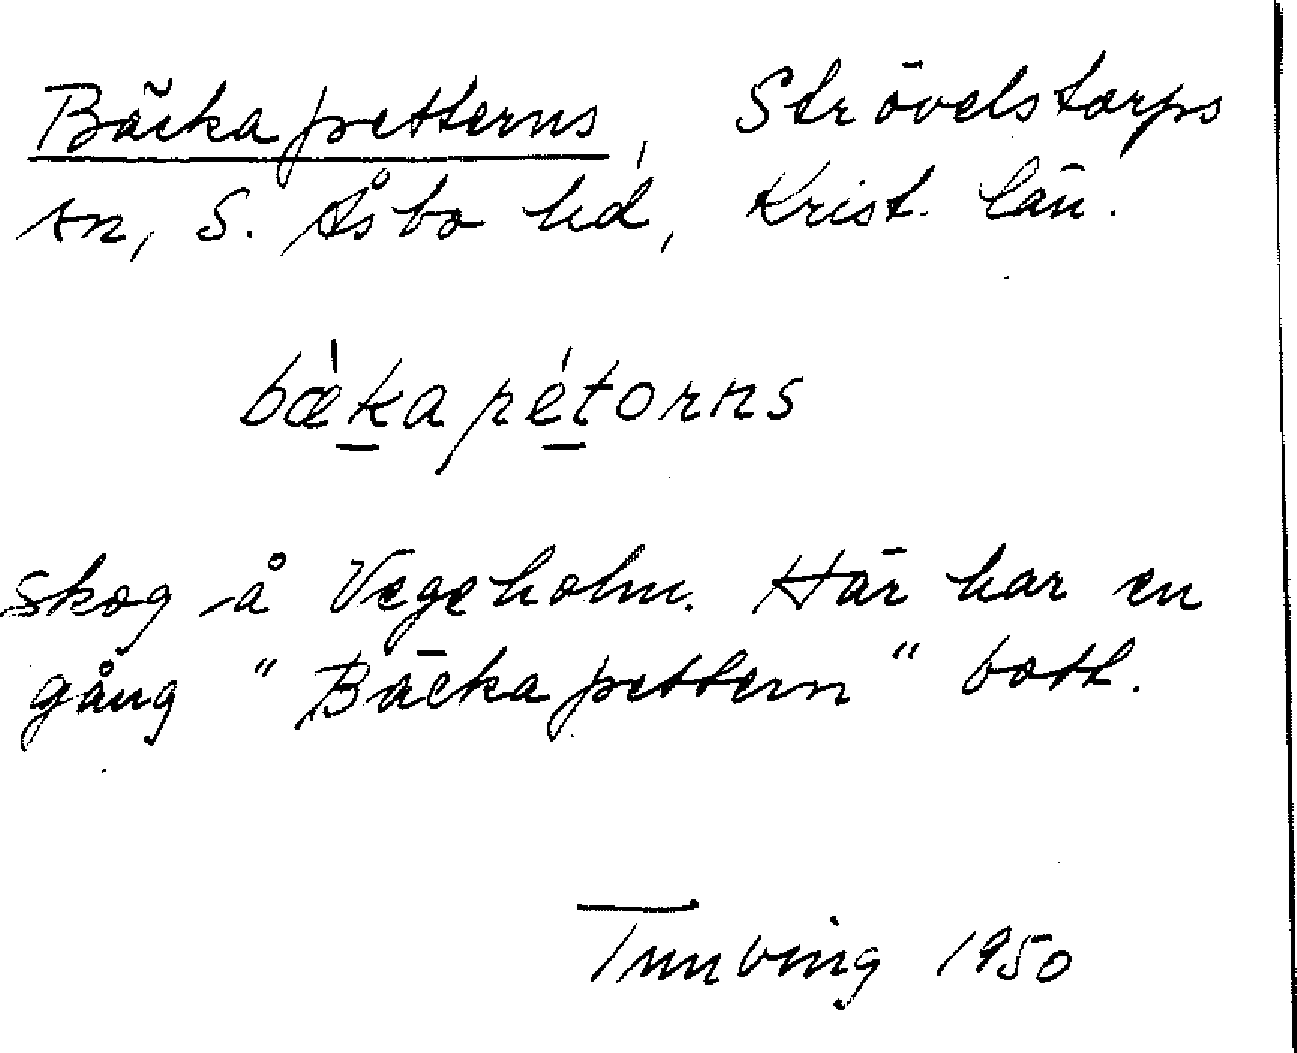 Bäckapetterns, Strövelstorps
sn, S. Åsbo hd, Krist. län.
bæ̀kapétorns
skog å Vegeholm. Här har en
gång "Bäckapettern" bott.
Tunving 1950